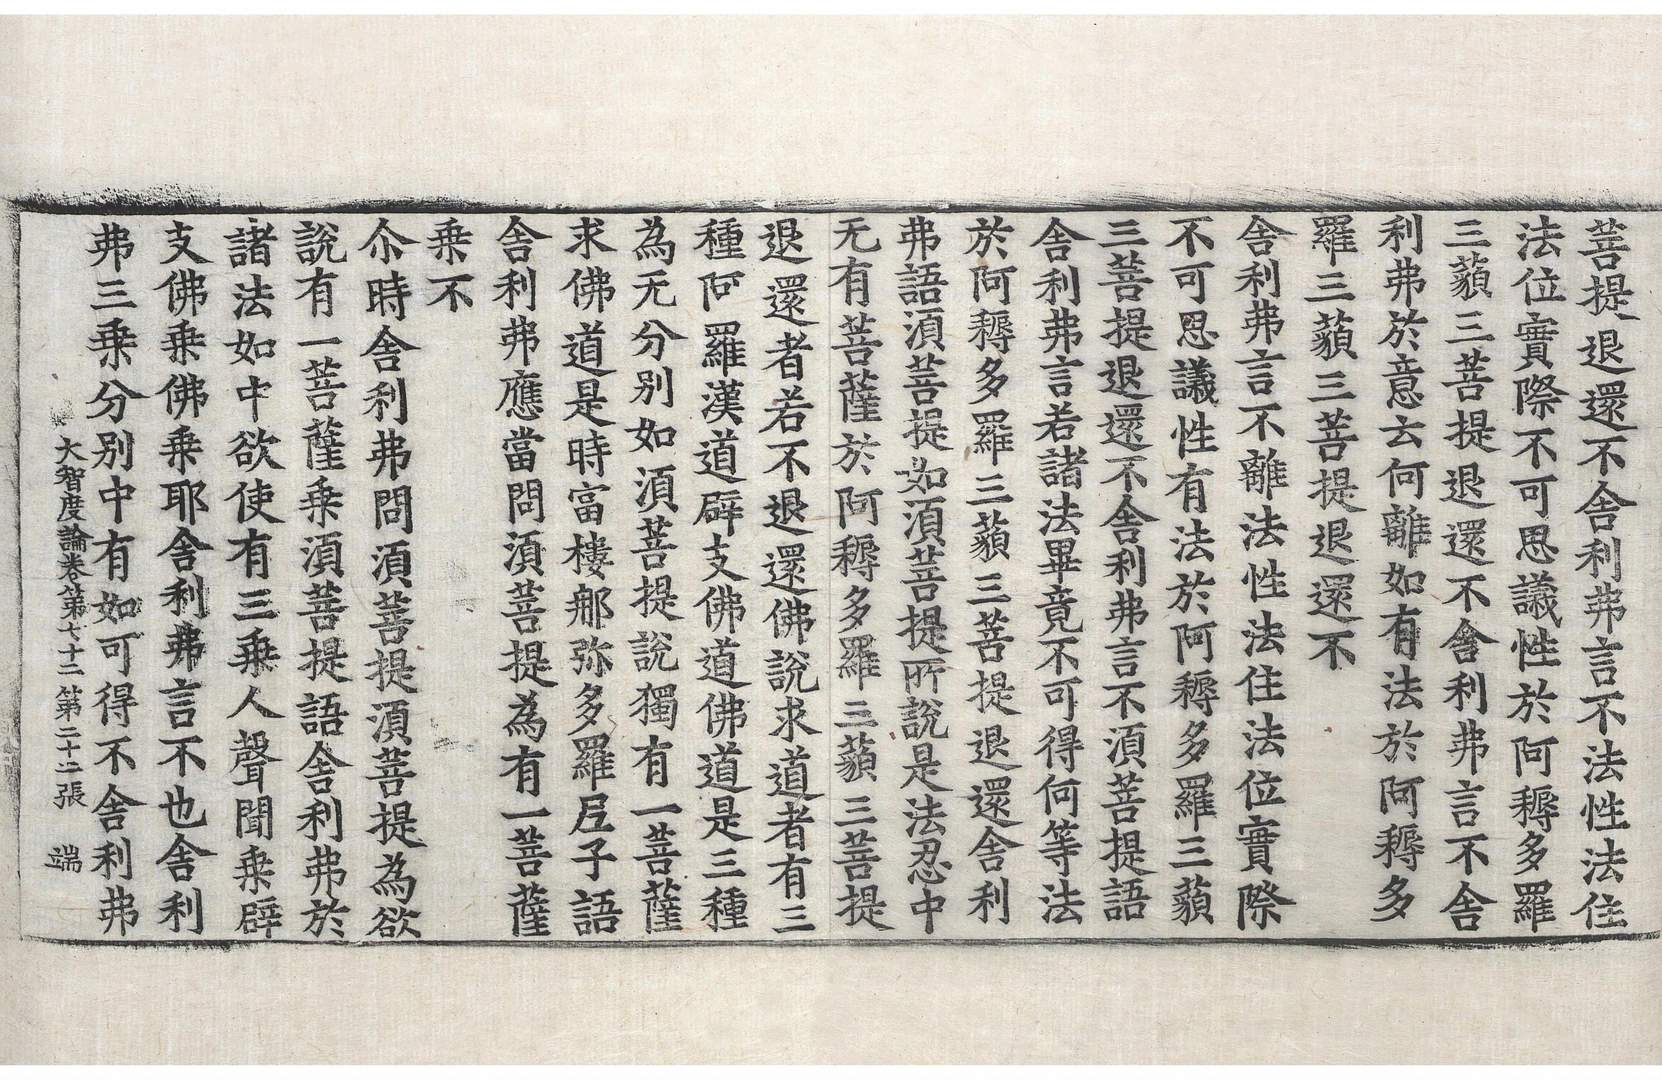 菩提退還不舍利弗言不法性法住
法位實際不可思議性於阿耨多羅
三藐三菩提退還不舍利弗言不舍
利弗於意云何離如有法於阿耨多
羅三藐三菩提退還不
舍利弗言不離法性法住法位實際
不可思議性有法於阿耨多羅三藐
三菩提退還不舍利弗言不湏菩提語
舍利弗言若諸法畢竟不可得何等法
於阿耨多羅三藐三菩提退還舍利
弗語湏菩提如湏菩提所說是法忍中
无有菩薩於阿耨多羅三藐三菩提
退還者若不退還佛說求道者有三
種阿羅漢道辟支佛道佛道是三種
為无分别如湏菩提說獨有一菩薩
求佛道是時富樓那弥多羅尼子語
舍利弗應當問湏菩提為有一菩薩
乗不
尒時舍利弗問湏菩提湏菩提為欲
說有一菩薩乗湏菩提語舍利弗於
諸法如中欲使有三乗人聲聞乗辟
支佛乗佛乗耶舍利弗言不也舍利
弗三乗分别中有如可得不舍利弗
大智度論卷第七十二 第二十二張 端